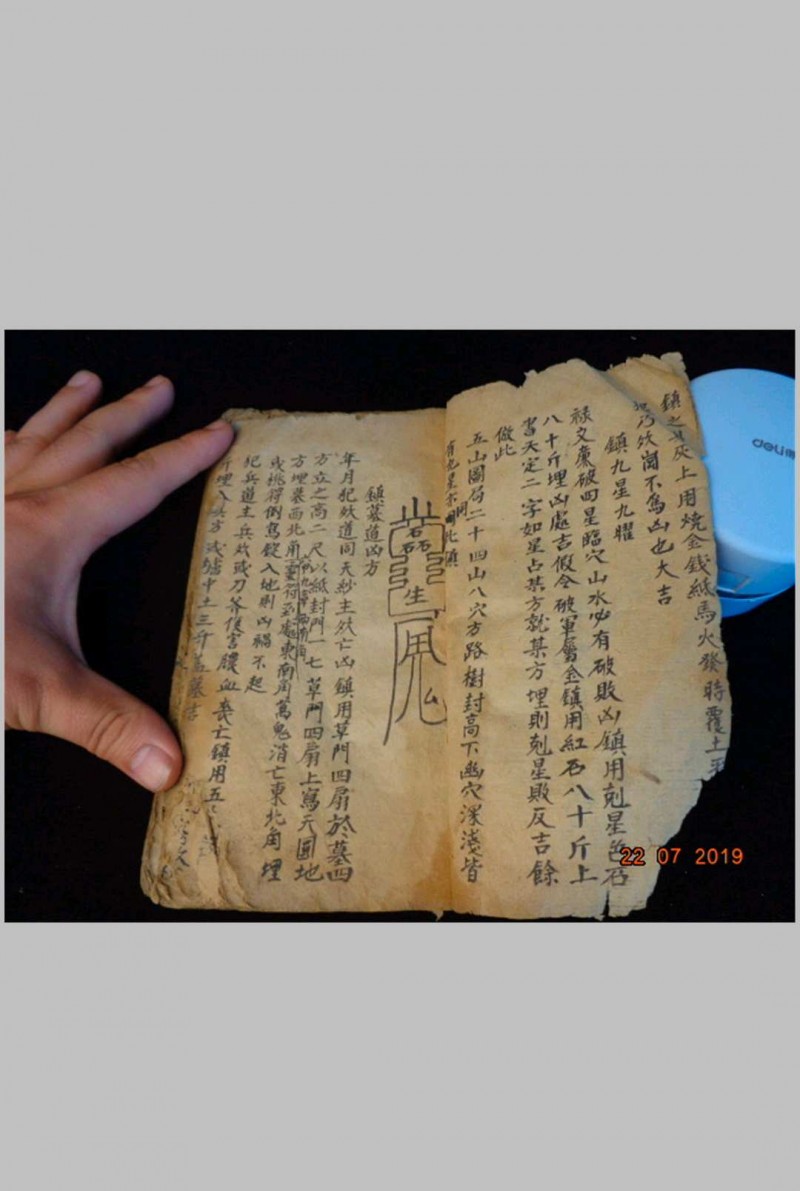 鎮之其灰上用燒金錢紙馬火發時覆土
災图不為凶也大吉
鎮九星九曜
祿文廉破四星臨穴山水必有破敗凶鎮用剋星色石
八十斤埋凶處吉假令破軍屬金鎮用紅石八十斤上
書天定二字如星占某方就某方埋則剋星敗反吉餘
做此
五山圖局二十四山八穴方路樹封高下幽穴深淺皆
有九星不同此鎮
鎮墓道凶方
年月犯妖道同天紗主妖亡凶鎮用草門四扇於墓四
方立之高二尺以紙封門一七草門四扇上寫天圓地
方埋墓西北角東南角萬鬼消亡東北角埋
或桃符倒寫錠入地則凶禍不起
犯兵道主兵災或刀斧傷害膿血喪亡鎮用五
斤埋入兵方或墟中土三升蓋墓吉
deli
22 07 2019